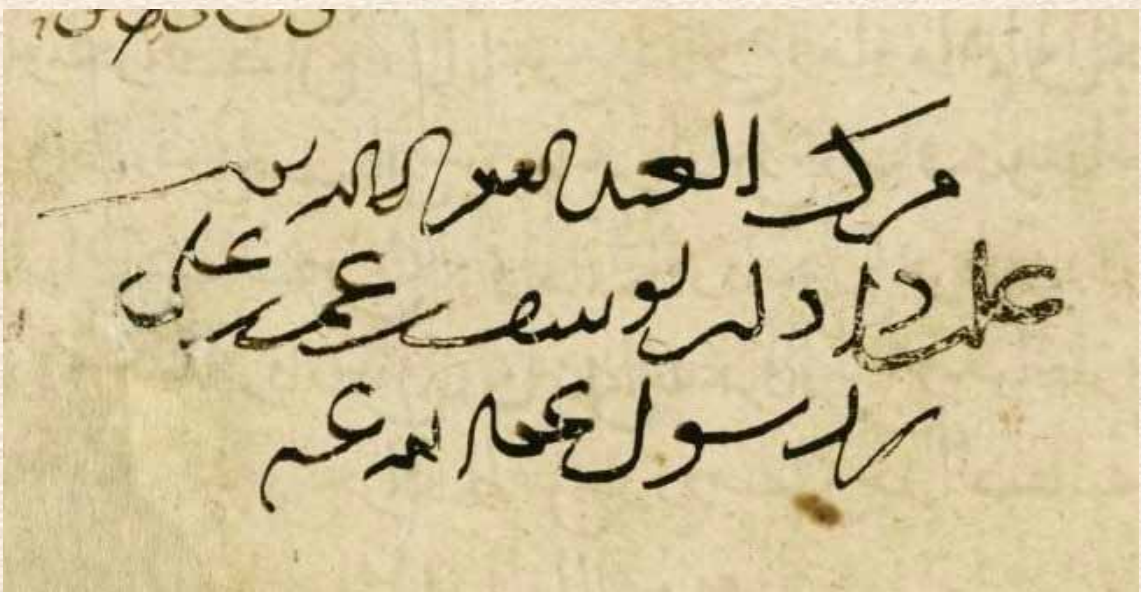 من كتب العبد الفقير الى الله
علي بن داود بن يوسف بن عمر بن علي
بن رسول عفا الله عنهم